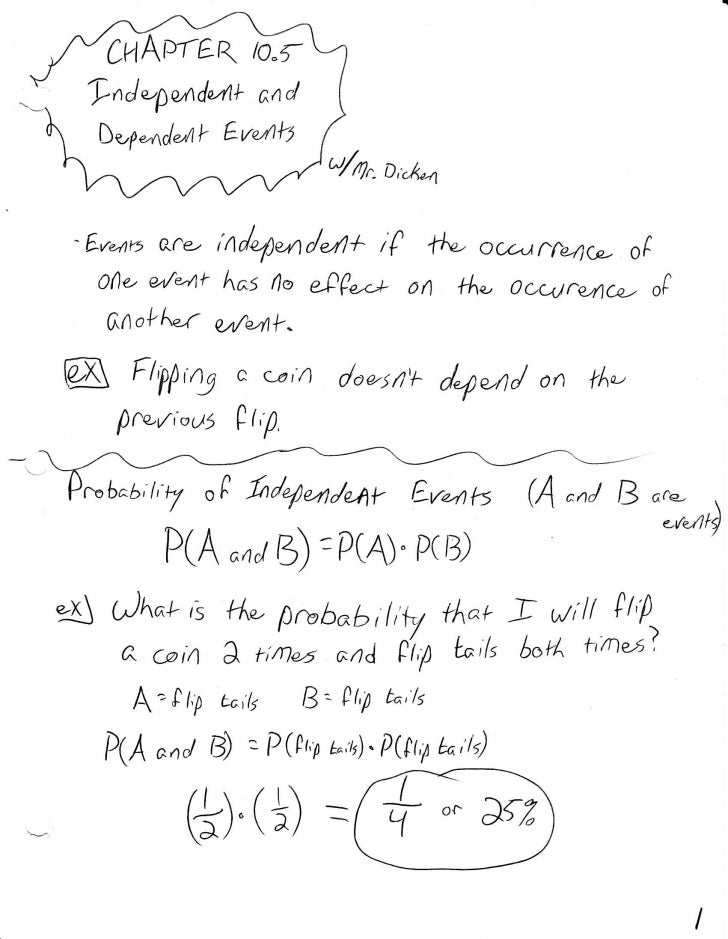 CHAPTER 10.5
Independent and
Dependent Events
w/ Mr. Dicken
· Events are independent if the occurrence of
one event has no effect on the occurence of
another event.
ex Flipping a coin doesn't depend on the
previous flip.
Probability of Independent Events (A and B are
events)
P(A and B) = P(A) · P(B)
ex) What is the probability that I will flip
a coin 2 times and flip tails both times?
A = flip tails B = flip tails
P(A and B) = P(flip tails) · P(flip tails)
(1/2) · (1/2) = 1/4 or 25%
1